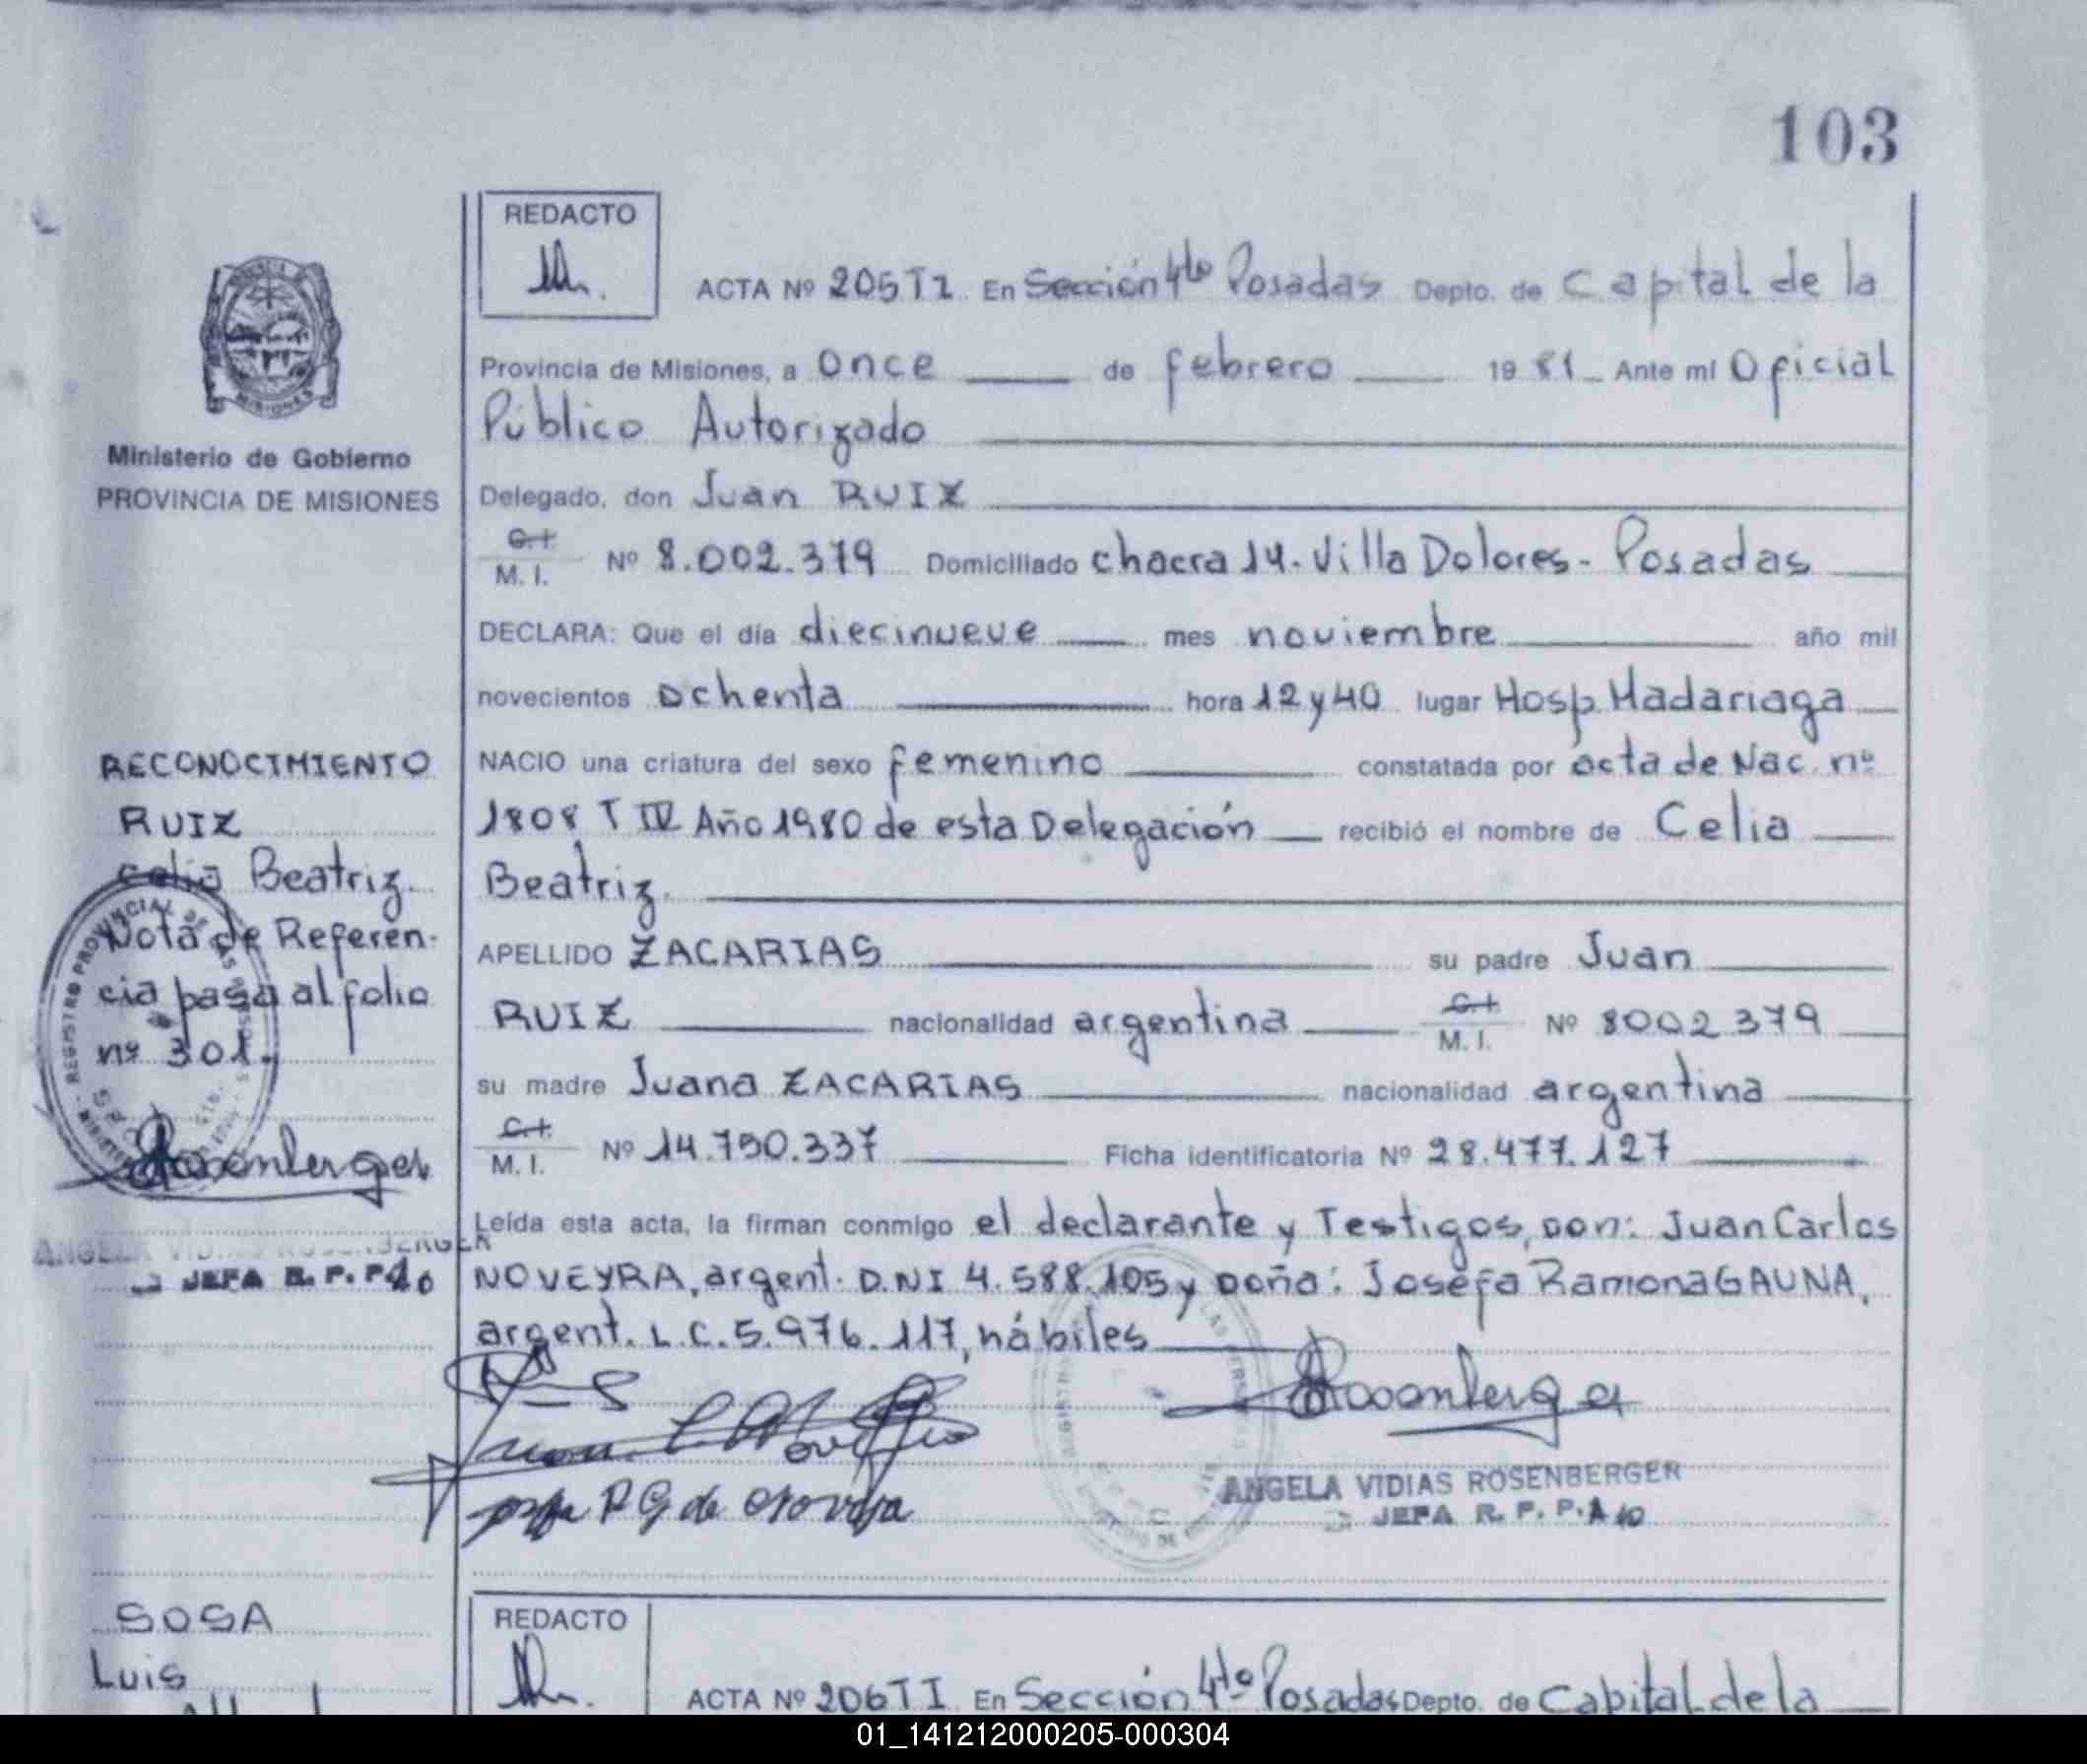 103
REDACTO
ACTA Nº 205 T I En Sección 4to Posadas Depto. de Capital de la
Provincia de Misiones, a once de febrero 1981 Ante mí Oficial
Público Autorizado
Ministerio de Gobierno
PROVINCIA DE MISIONES
Delegado, don Juan RUIZ
C.I. M.I. Nº 8.002.379 Domiciliado chacra 14. Villa Dolores - Posadas
DECLARA: Que el día diecinueve mes noviembre año mil
novecientos ochenta hora 12 y 40 lugar Hosp. Madariaga
RECONOCIMIENTO
RUIZ
Celia Beatriz.
Nota de Referen-
cia pasa al folio
nº 301.
Rosenberger
ANGELA VIDIAS ROSENBERGER
JEFA R. P. P.
NACIO una criatura del sexo femenino constatada por acta de Nac. nº
1808 T IV Año 1980 de esta Delegación recibió el nombre de Celia
Beatriz.
APELLIDO ZACARIAS su padre Juan
RUIZ nacionalidad argentina C.I. M.I. Nº 8002379
su madre Juana ZACARIAS nacionalidad argentina
C.I. M.I. Nº 14.750.337 Ficha identificatoria Nº 28.477.127
Leída esta acta, la firman conmigo el declarante y Testigos, don: Juan Carlos
NOVEYRA, argent. D.N.I 4.588.105 y Doña: Josefa Ramona GAUNA,
argent. L.C. 5.976.117, hábiles
Rosenberger
ANGELA VIDIAS ROSENBERGER
JEFA R. P. P.
SOSA
Luis
REDACTO
ACTA Nº 206 T I En Sección 4to Posadas Depto. de Capital de la
01_141212000205-000304